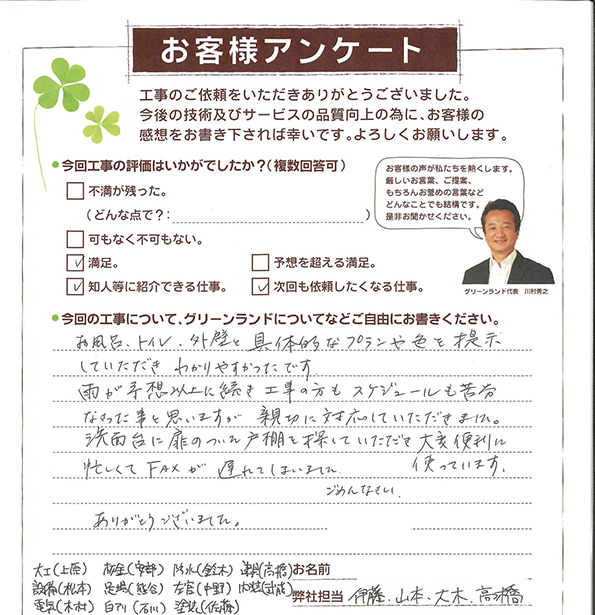 お客様アンケート
工事のご依頼をいただきありがとうございました。
今後の技術及びサービスの品質向上の為に、お客様の
感想をお書き下されば幸いです。よろしくお願いします。
●今回工事の評価はいかがでしたか?(複数回答可)
お客様の声が私たちを熱くします。
厳しいお言葉、ご提案、
もちろんお誉めの言葉など
どんなことでも結構です。
是非お聞かせください。
グリーンランド代表 川村秀之
□ 不満が残った。
(どんな点で?: )
□ 可もなく不可もない。
☑ 満足。 □ 予想を超える満足。
☑ 知人等に紹介できる仕事。 ☑ 次回も依頼したくなる仕事。
●今回の工事について、グリーンランドについてなどご自由にお書きください。
お風呂、トイレ、外壁と具体的なプランや色を提示
していただき わかりやすかったです
雨が予想以上に続き 工事の方も スケジュールも苦労
なさった事と思いますが 親切に対応していただきました。
洗面台に扉のついた戸棚を探していただき大変便利に
使っています。
忙しくて FAXが 遅れてしまいました
ごめんなさい。
ありがとうございました。
大工(上原) 板金(安部) 防水(鈴木) (高橋) お名前
設備(松本) 足場(熊谷) 左官(中野) 内装(武蔵)
弊社担当 伊藤、山本、大木、高橋
電気(木村) 白アリ(石川) 塗装(佐藤)